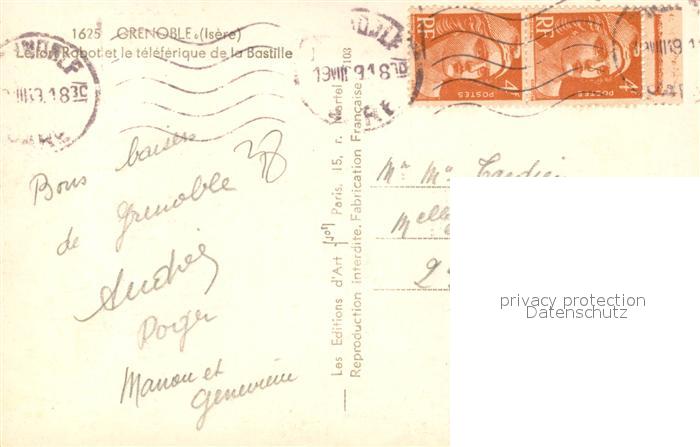 1625 GRENOBLE (Isère)
Le fort Rabot et le téléférique de la Bastille
Bons baisers
de Grenoble
André
Roger
Manon et
Geneviève
Les Editions d'Art Paris, 15, r. Martel
Reproduction interdite. Fabrication Française
RF
4F
POSTES
RF
4F
POSTES
Mr Me
Melle
privacy protection
Datenschutz